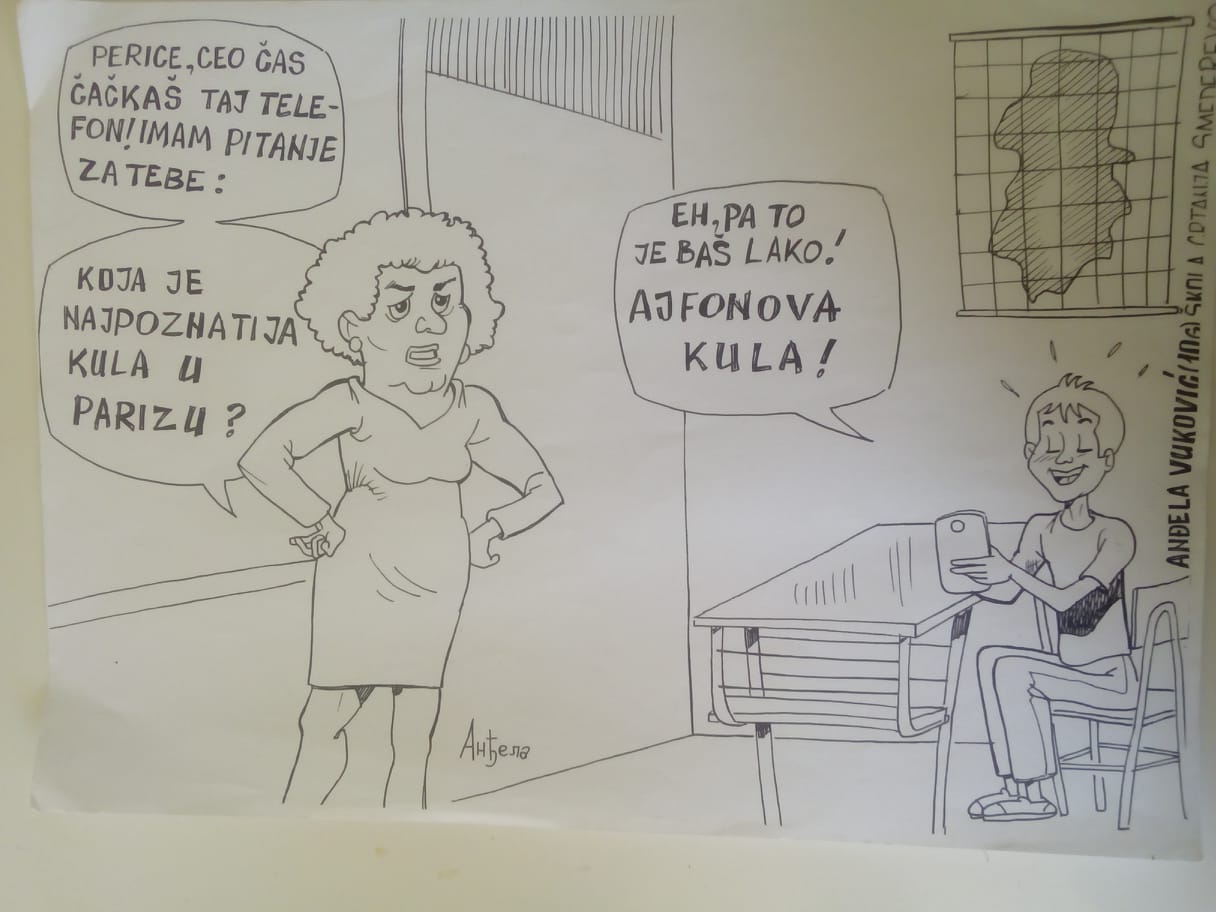 PERICE, CEO ČAS
ČAČKAŠ TAJ TELE-
FON! IMAM PITANJE
ZA TEBE:
KOJA JE
NAJPOZNATIJA
KULA U
PARIZU?
EH, PA TO
JE BAŠ LAKO!
AJFONOVA
KULA!
Анђела
ANĐELA VUKOVIĆ (11 ŠKOLA CRTANJA SMEDEREVO